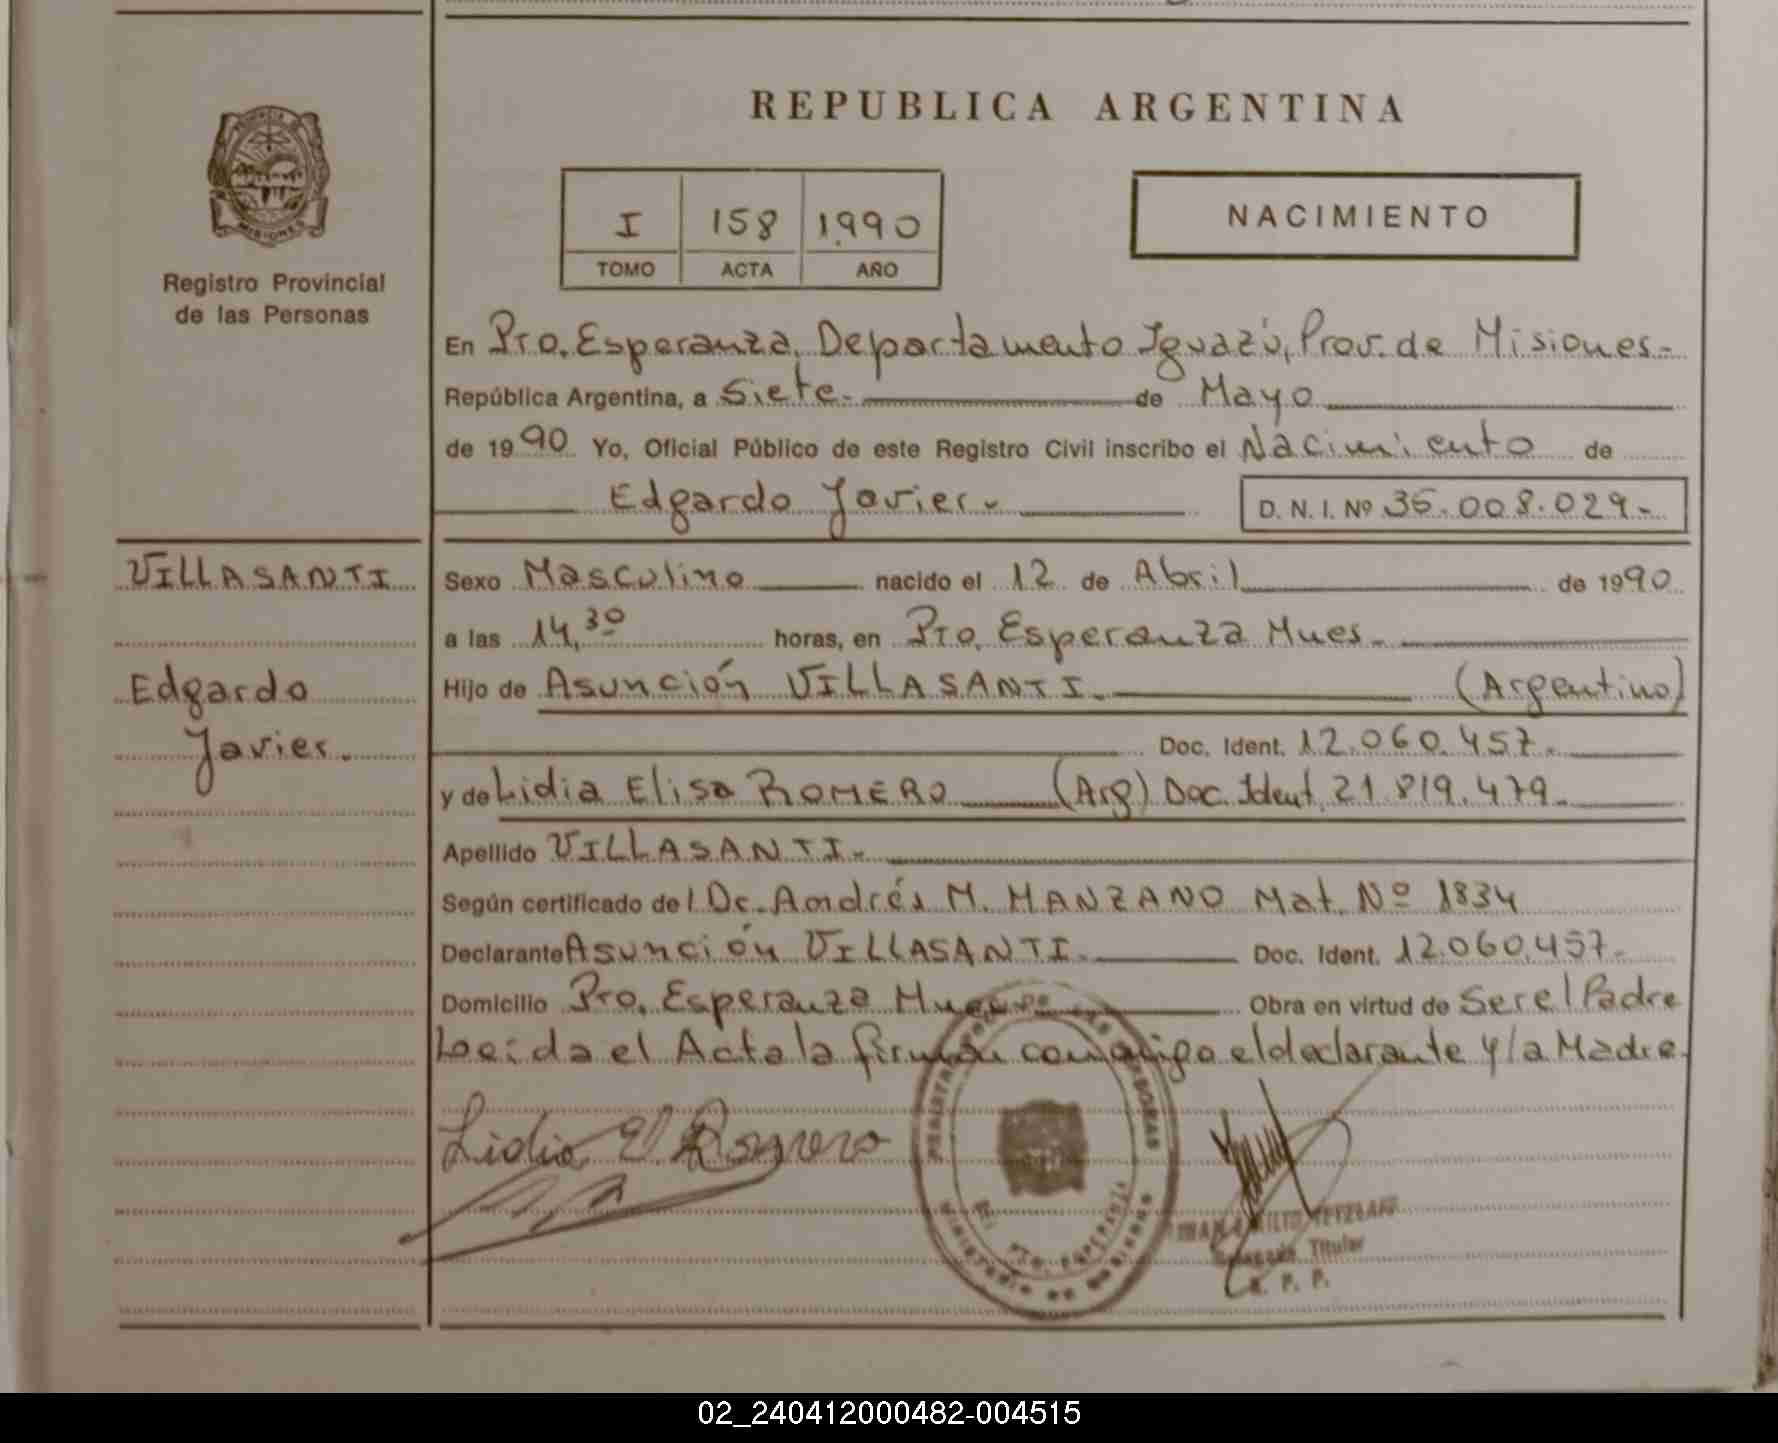 REPUBLICA ARGENTINA
PROVINCIA DE
MISIONES
Registro Provincial
de las Personas
I 158 1990
TOMO ACTA AÑO
NACIMIENTO
En Pto. Esperanza, Departamento Iguazú, Prov. de Misiones-
República Argentina, a Siete.- de Mayo
de 1990 Yo, Oficial Público de este Registro Civil inscribo el Nacimiento de
Edgardo Javier.- D. N. I. Nº 35.008.029.-
VILLASANTI
Edgardo
Javier.
Sexo Masculino nacido el 12 de Abril de 1990
a las 14,30 horas, en Pto. Esperanza Mnes.-
Hijo de Asunción VILLASANTI.- (Argentino)
Doc. Ident. 12.060.457.-
y de Lidia Elisa ROMERO (Arg) Doc. Ident. 21.819.479.-
Apellido VILLASANTI.-
Según certificado del Dr. Andrés M. MANZANO Mat. Nº 1834
Declarante Asunción VILLASANTI.- Doc. Ident. 12.060.457.-
Domicilio Pto. Esperanza Mnes.- Obra en virtud de Ser el Padre
Leída el Acta la firman conmigo el declarante y la Madre.
Lidia E. Romero
PTO. ESPERANZA
MINISTERIO DE GOBIERNO
TETZLAFF
Delegado Titular
R. P. P.
02_240412000482-004515